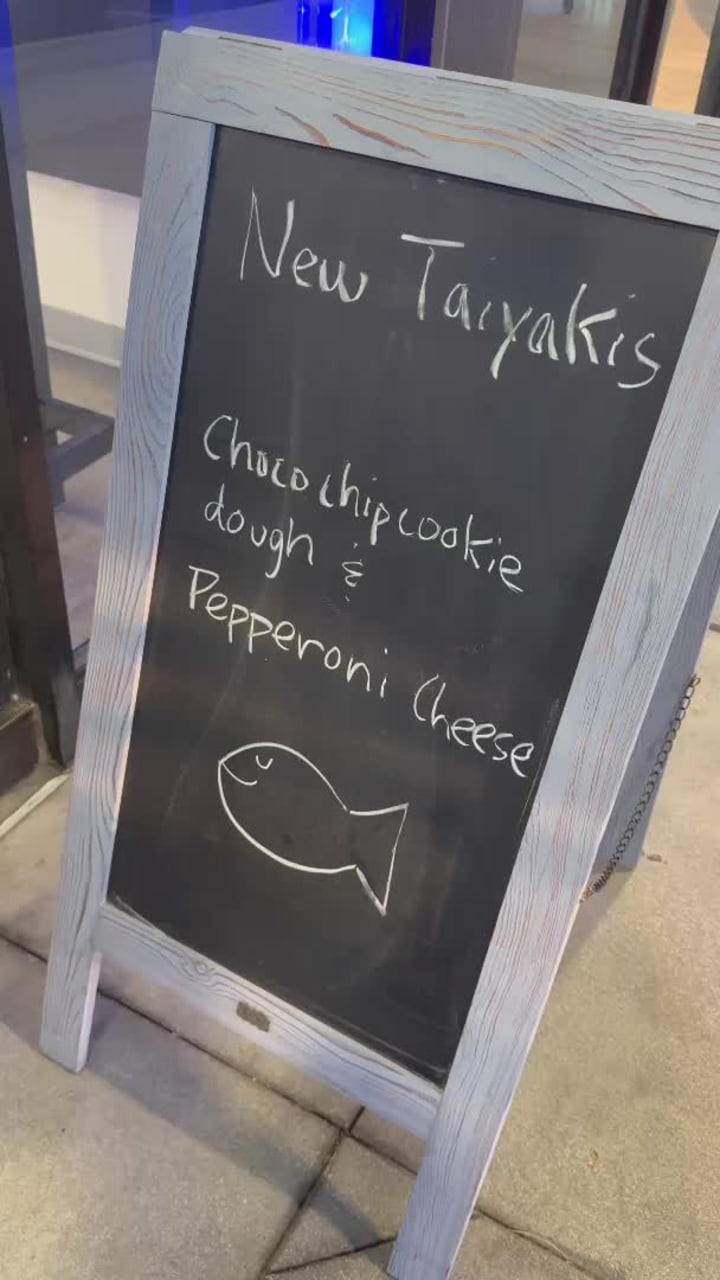 New Taiyakis
Choco chip cookie
dough &
Pepperoni Cheese